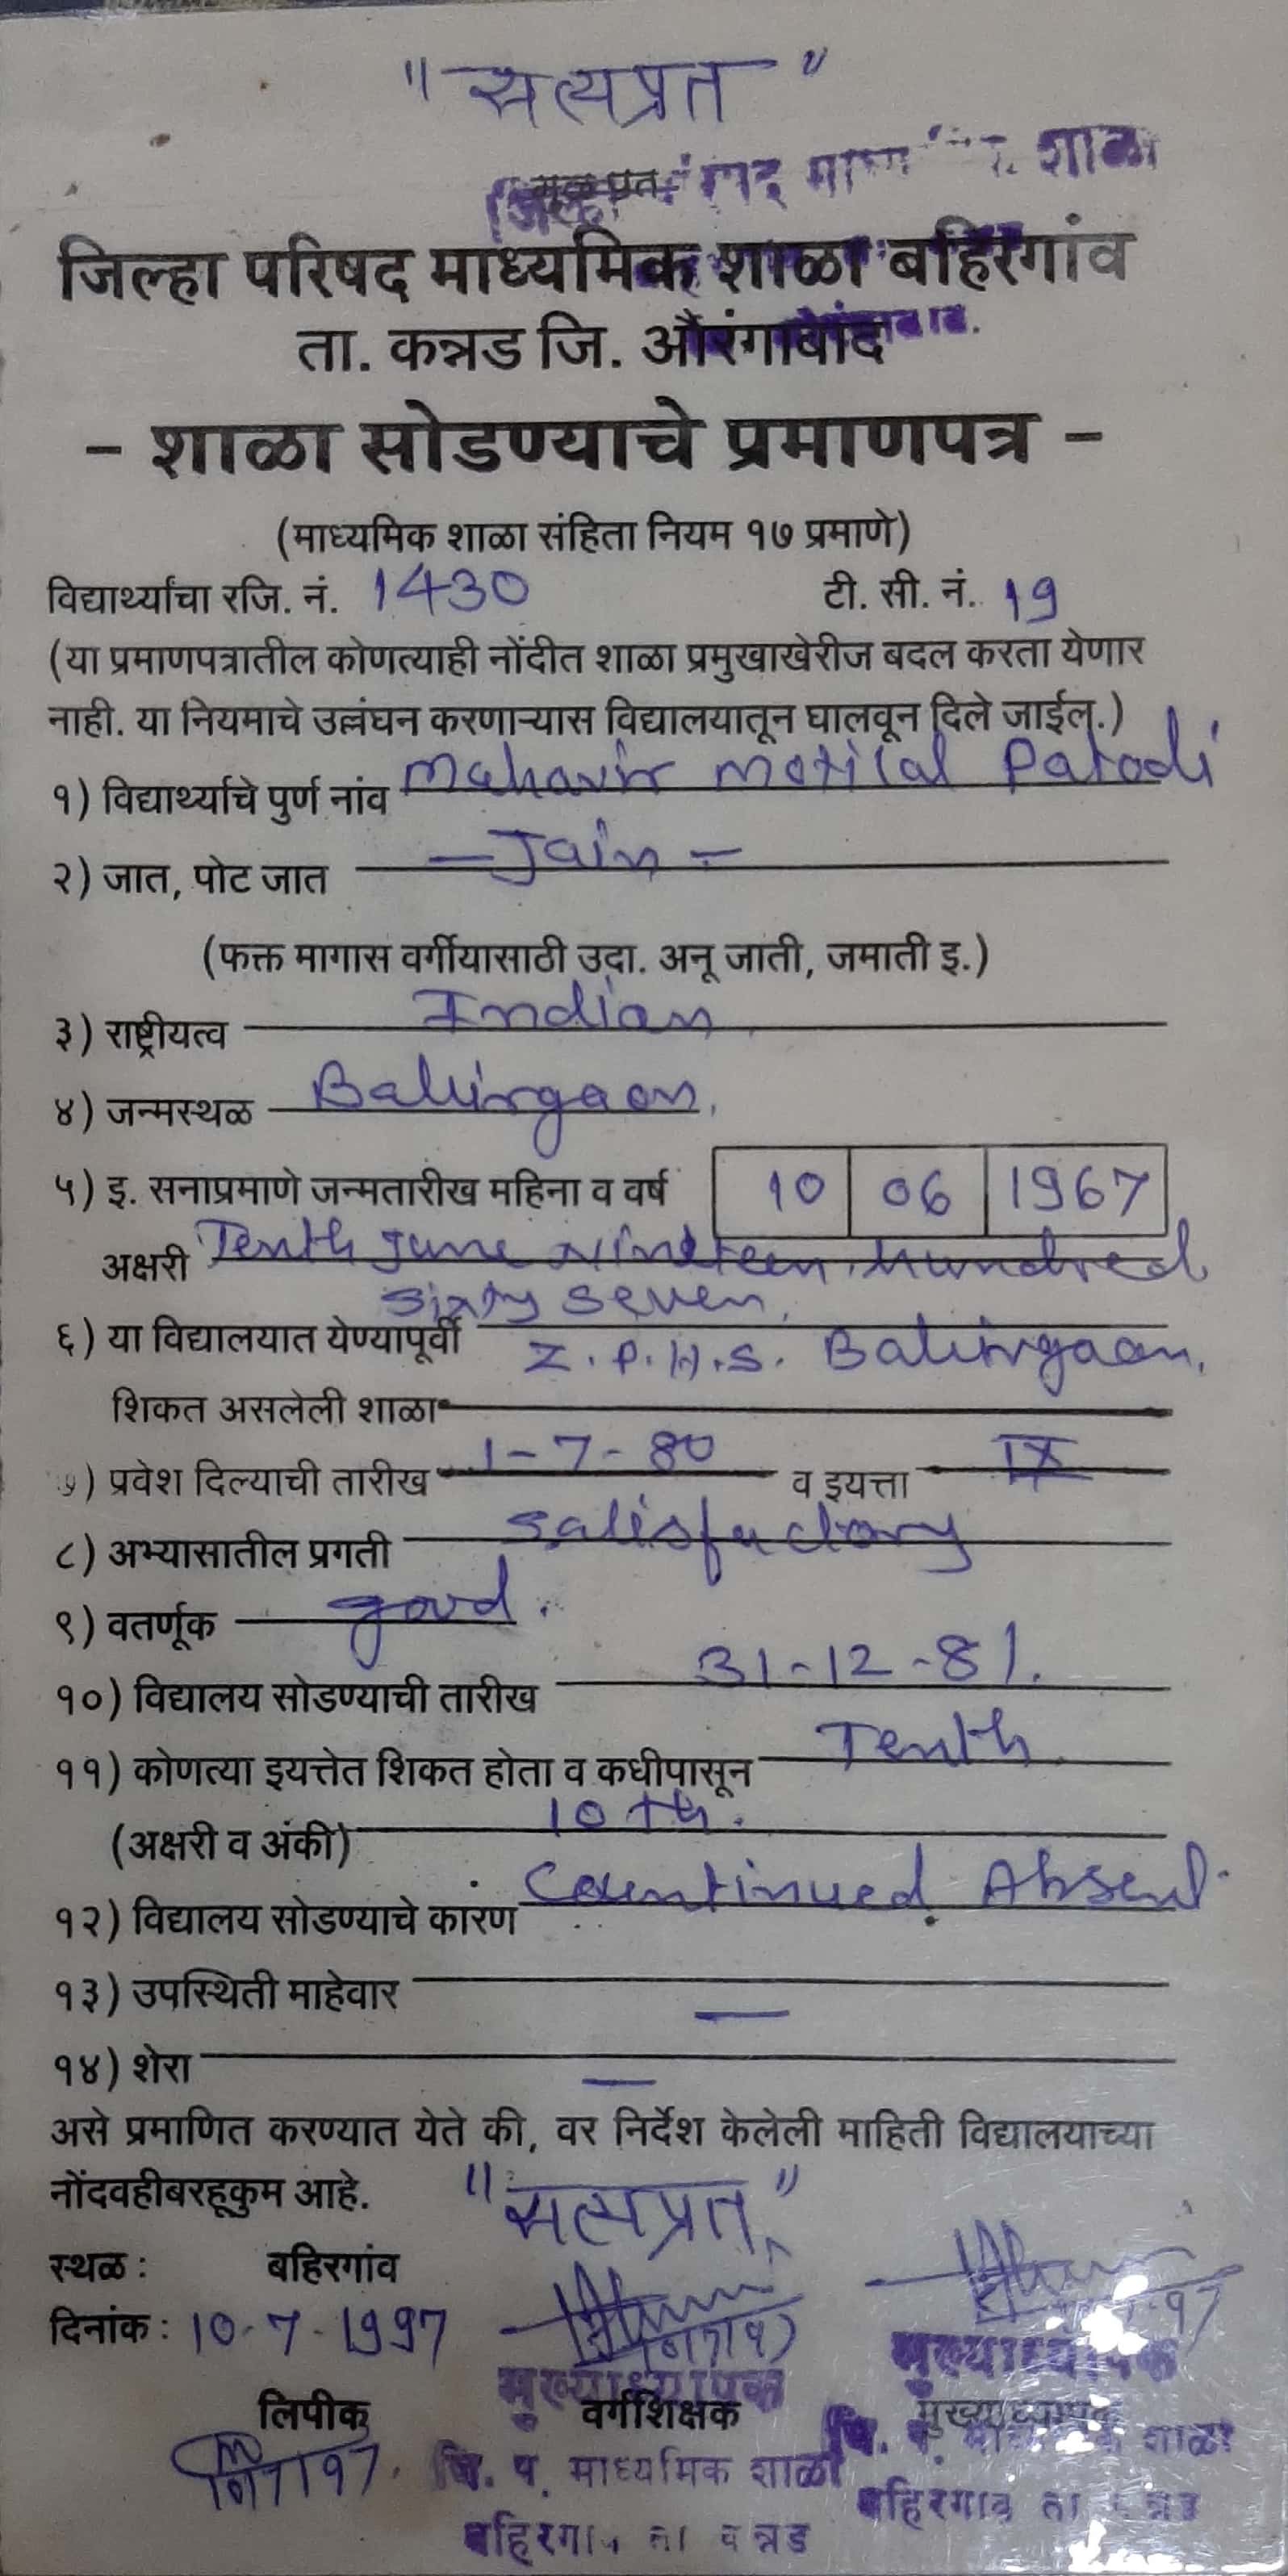 "सत्यप्रत"
मूळ प्रत
शाळा
जिल्हा परिषद माध्यमिक शाळा बहिरगांव
ता. कन्नड जि. औरंगाबाद
- शाळा सोडण्याचे प्रमाणपत्र -
(माध्यमिक शाळा संहिता नियम १७ प्रमाणे)
विद्यार्थ्यांचा रजि. नं. 1430 टी. सी. नं. 19
(या प्रमाणपत्रातील कोणत्याही नोंदीत शाळा प्रमुखाखेरीज बदल करता येणार
नाही. या नियमाचे उल्लंघन करणाऱ्यास विद्यालयातून घालवून दिले जाईल.)
१) विद्यार्थ्याचे पुर्ण नांव Mahavir Motilal Patodi
२) जात, पोट जात - Jain -
(फक्त मागास वर्गीयासाठी उदा. अनू जाती, जमाती इ.)
३) राष्ट्रीयत्व Indian
४) जन्मस्थळ Bahirgaon.
५) इ. सनाप्रमाणे जन्मतारीख महिना व वर्ष 10 06 1967
अक्षरी Tenth June Nineteen hundred
sixty seven.
६) या विद्यालयात येण्यापूर्वी Z.P.H.S. Bahirgaon.
शिकत असलेली शाळा
७) प्रवेश दिल्याची तारीख 1-7-80 व इयत्ता IX
८) अभ्यासातील प्रगती satisfactory
९) वतर्णूक good.
१०) विद्यालय सोडण्याची तारीख 31-12-81.
११) कोणत्या इयत्तेत शिकत होता व कधीपासून Tenth
(अक्षरी व अंकी) 10th.
१२) विद्यालय सोडण्याचे कारण Countinued Absent
१३) उपस्थिती माहेवार —
१४) शेरा —
असे प्रमाणित करण्यात येते की, वर निर्देश केलेली माहिती विद्यालयाच्या
नोंदवहीबरहूकुम आहे. "सत्यप्रत"
स्थळ : बहिरगांव
दिनांक : 10-7-1997
मुख्याध्यापक मुख्याध्यापक
लिपीक वर्गशिक्षक मुख्याध्यापक
जि. प. माध्यमिक शाळा जि. प. शाळा
बहिरगाव ता बहिरगाव ता